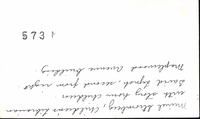 5734
Muriel Blomberg, Children's Librarian
with story hour children
David Lynch, second from right
Maplewood Avenue building.